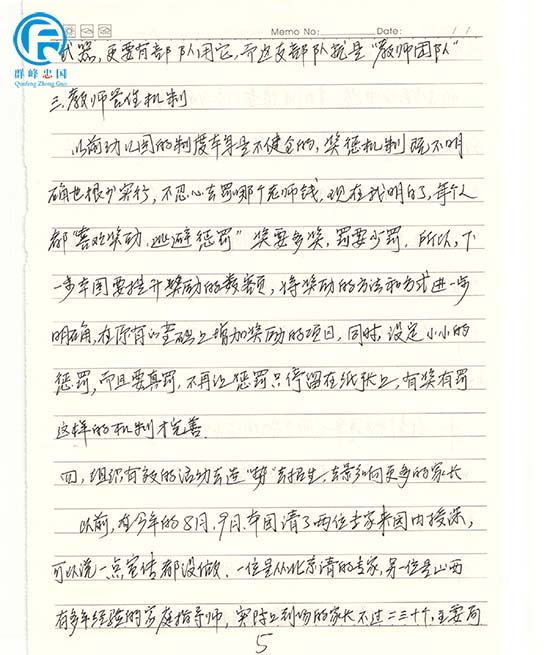 群峰忠国
Qunfeng Zhong Guo
Memo No: Date: / /
武器,更要有部队用它,而这支部队就是“教师团队”
三.教师责任机制
以前幼儿园的制度本身是不健全的,奖惩机制既不明
确也很少实行,不忍心去罚哪个老师钱,现在我明白了,每个人
都“喜欢奖励,逃避惩罚”奖要多奖,罚要少罚.所以,下
一步本园要提升奖励的数额,将奖励的方法和方式进一步
明确,在原有的基础上增加奖励的项目,同时,设定小小的
惩罚,而且要真罚,不再让惩罚只停留在纸张上,有奖有罚
这样的机制才完善.
四,组织有效的活动去造“势”去招生,去影响更多的家长
以前,在今年的8月,9月,本园请了两位专家来园内授课,
可以说一点宣传都没做.一位是从北京请的专家,另一位是山西
有多年经验的家庭指导师,实际上到场的家长不过二三十个,主要问
5